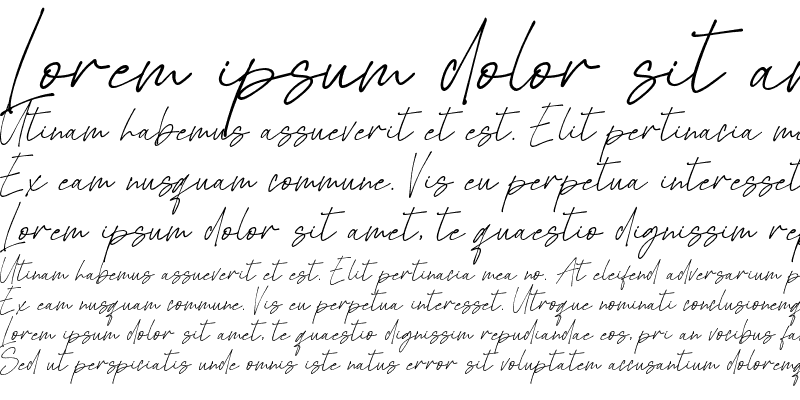 Lorem ipsum dolor sit am
Utinam habemus assueverit et est. Elit pertinacia me
Ex eam nusquam commune. Vis eu perpetua interesset
Lorem ipsum dolor sit amet, te quaestio dignissim rep
Utinam habemus assueverit et est. Elit pertinacia mea no. At eleifend adversarium p
Ex eam nusquam commune. Vis eu perpetua interesset. Utroque nominati conclusionemq
Lorem ipsum dolor sit amet, te quaestio dignissim repudiandae eos, pri an vocibus fa
Sed ut perspiciatis unde omnis iste natus error sit voluptatem accusantium doloremq